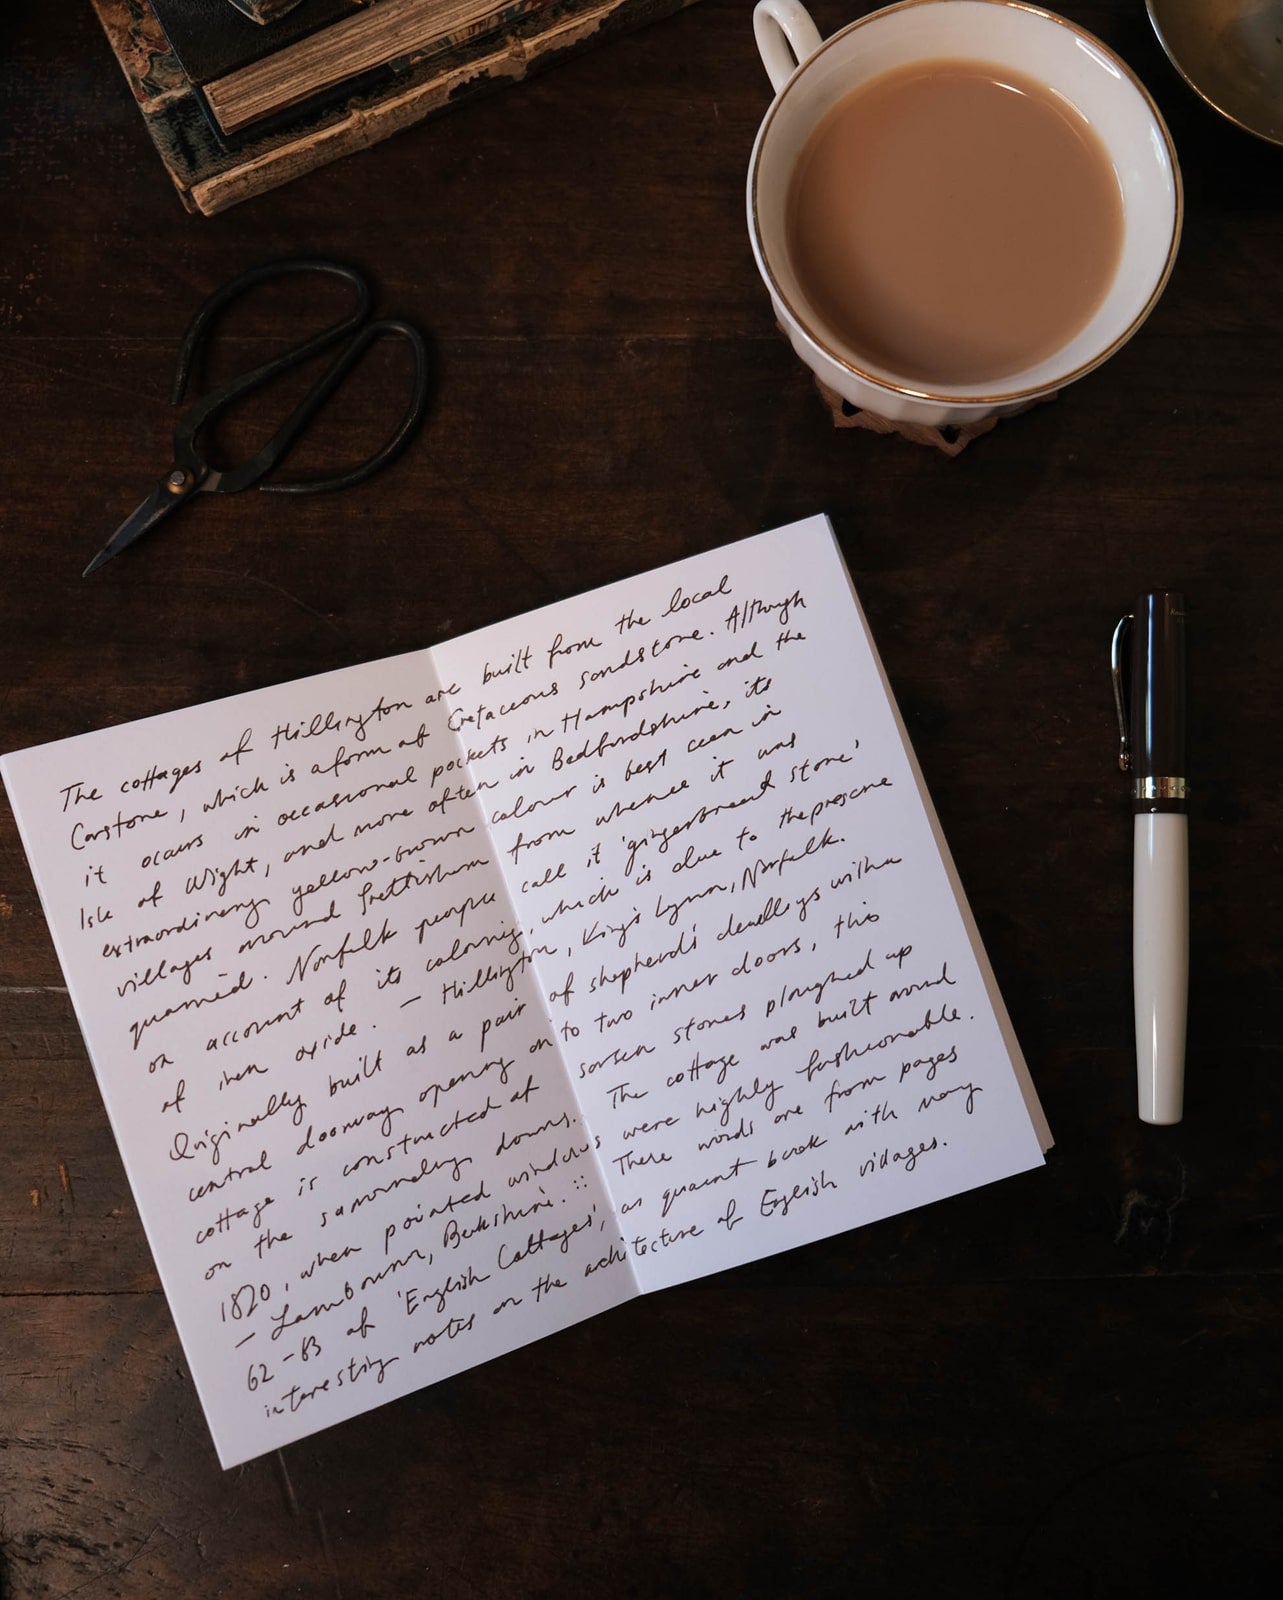 The cottages of Hillington are built from the local
Carstone, which is a form of Cretaceous sandstone. Although
it occurs in occasional pockets in Hampshire and the
Isle of Wight, and more often in Bedfordshire, its
extraordinary yellow-brown colour is best seen in
villages around Snettisham from whence it was
quarried. Norfolk people call it 'gingerbread stone'
on account of its colouring, which is due to the presence
of iron oxide. — Hillington, King's Lynn, Norfolk.
Originally built as a pair of shepherd's dwellings with a
central doorway opening on to two inner doors, this
cottage is constructed of sarsen stones ploughed up
on the surrounding downs. The cottage was built around
1820, when pointed windows were highly fashionable.
— Lambourn, Berkshire. :: These words are from pages
62-83 of 'English Cottages', a quaint book with many
interesting notes on the architecture of English villages.